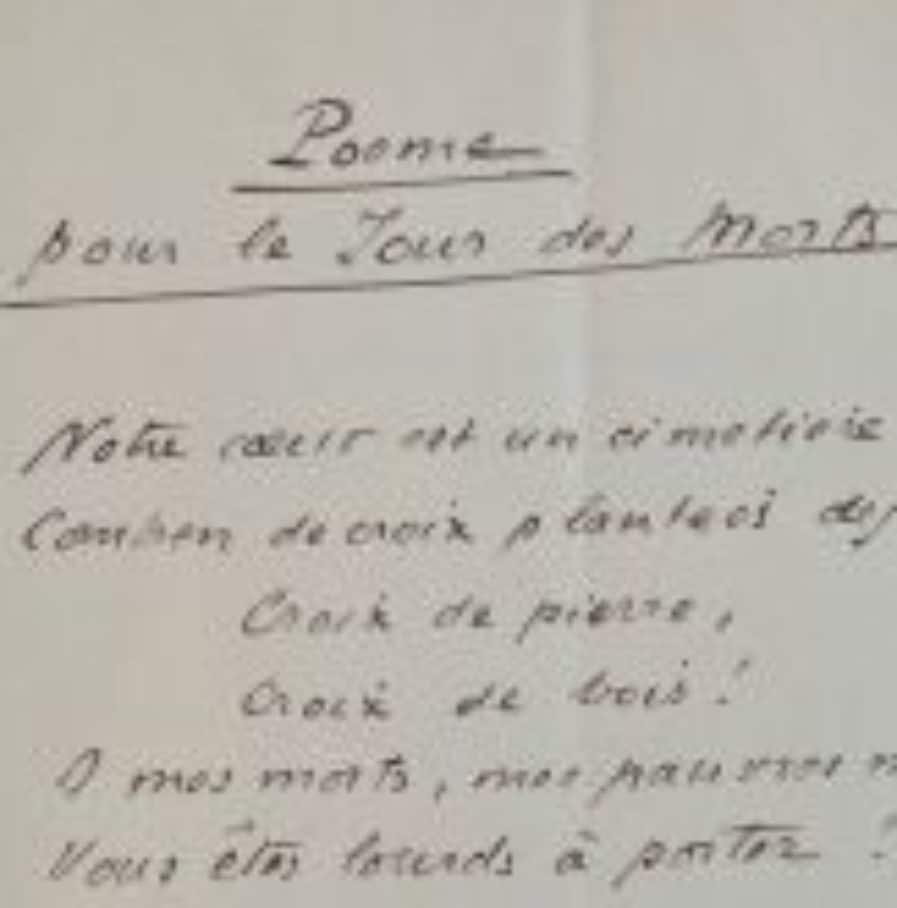 Poème
pour le Jour des Morts
Notre cœur est un cimetière
Combien de croix plantées
Croix de pierre,
Croix de bois !
O mes morts, mes pauvres
Vous êtes lourds à porter !